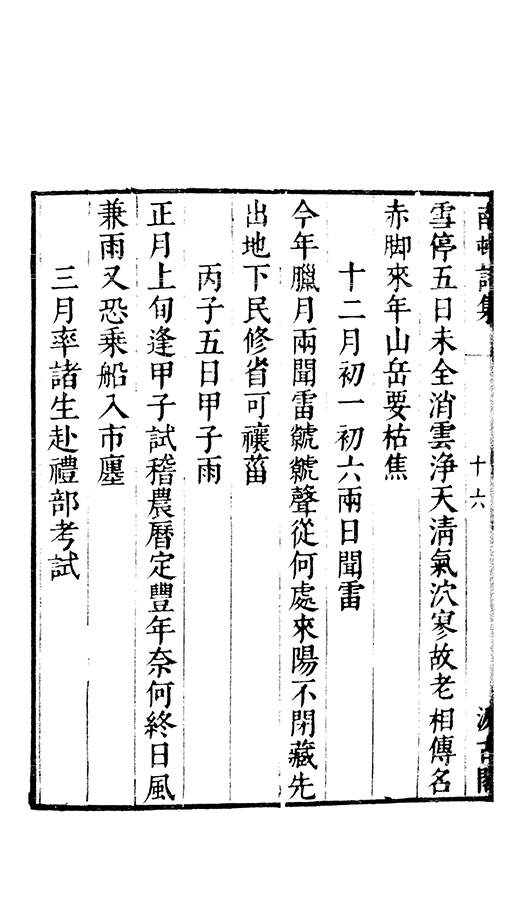 南邨詩集
十六
汲古閣
雪停五日未全消雲淨天清氣泬寥故老相傳名
赤脚來年山岳要枯焦
十二月初一初六兩日聞雷
今年臘月兩聞雷虩虩聲從何處來陽不閉藏先
出地下民修省可禳菑
丙子五日甲子雨
正月上旬逢甲子試稽農曆定豐年奈何終日風
兼雨又恐乘船入市廛
三月率諸生赴禮部考試